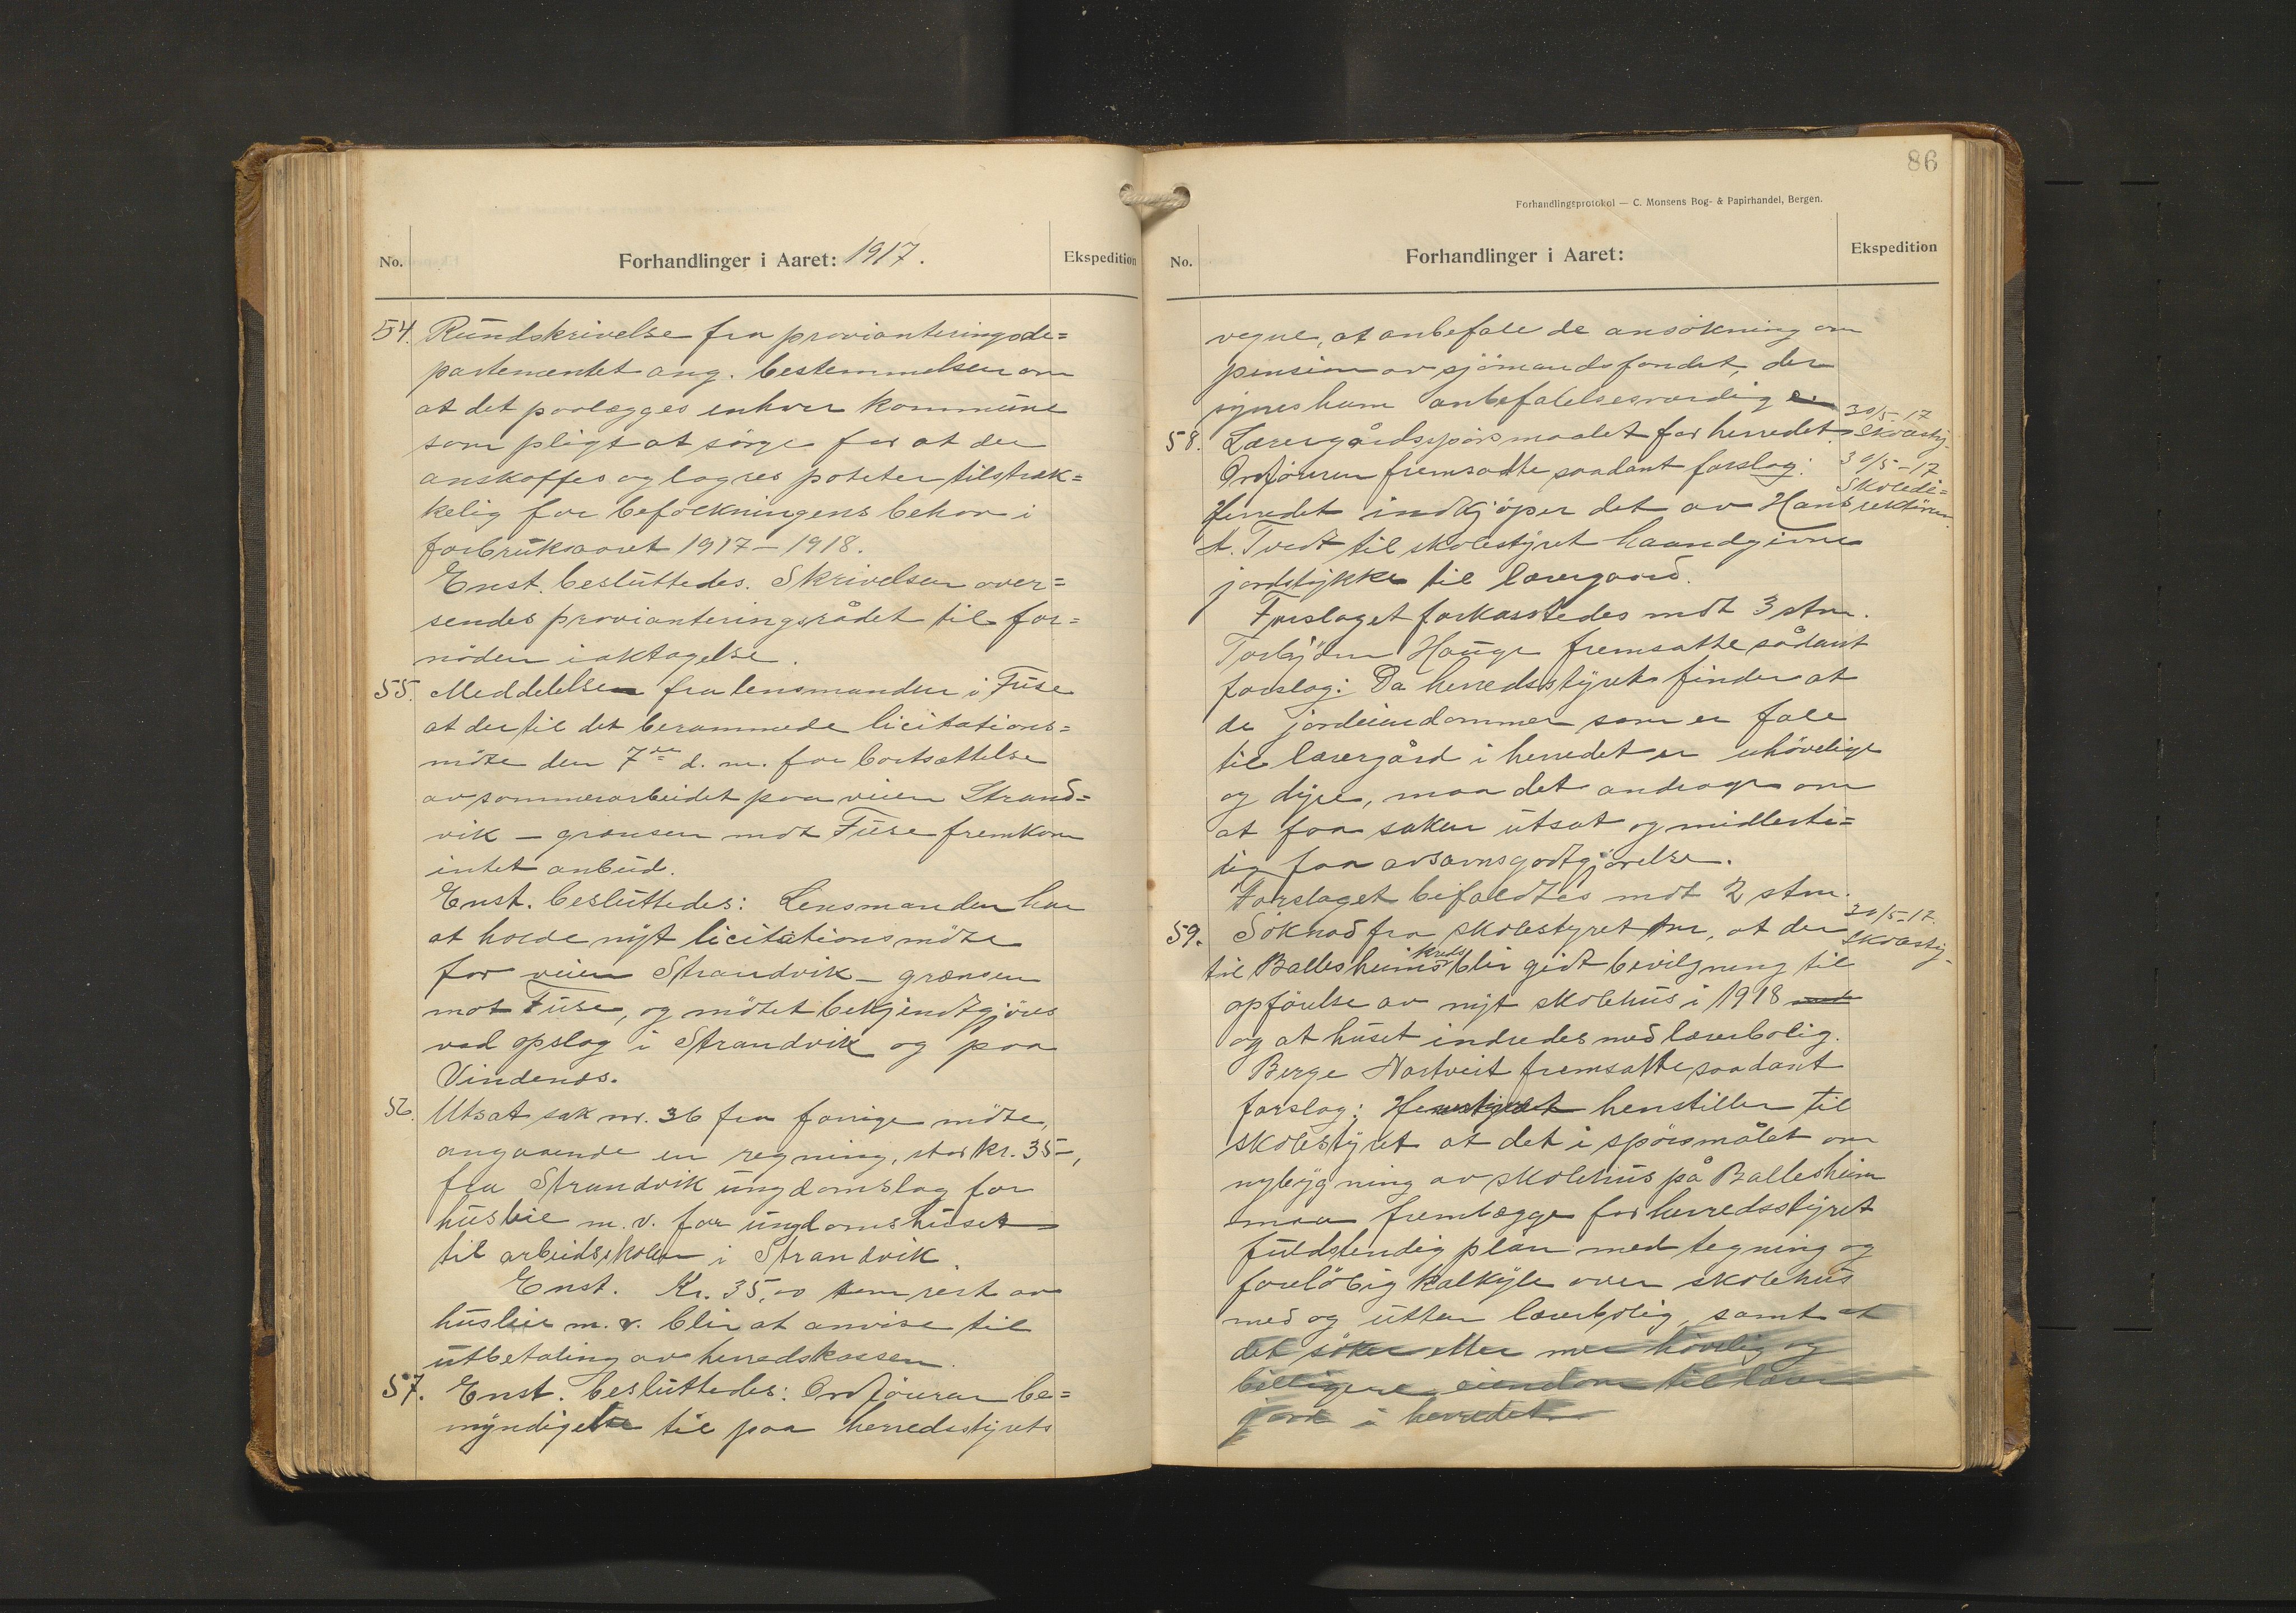 No.
Forhandlinger i Aaret: 1917.
Ekspedition
54. Rundskrivelse fra provianteringsde=
partementet ang. bestemmelsen om
at det paalægges enhver kommune
som pligt at sörge for at der
anskaffes og lagres poteter tilstræk=
kelig for befolkningens behov i
forbruksaaret 1917-1918.
Enst. besluttedes. Skrivelsen over=
sendes provianteringsrådet til for=
nöden iaktagelse.
55. Meddelelse fra lensmanden i Fuse
at der til det berammede licitations=
möte den 7de d. m. for bortsættelse
av sommerarbeidet paa veien Strand=
vik - grænsen mot Fuse fremkom
intet anbud.
Enst. besluttedes: Lensmanden har
at holde nyt licitationsmöte
for veien Strandvik - grænsen
mot Fuse, og mötet bekjendtgjöres
ved opslag i Strandvik og paa
Vindenes.
56. Utsat sak nr. 36 fra forrige möte,
angaaende en regning, stor kr. 35-,
fra Strandvik ungdomslag for
husleie m. v. for ungdomshuset
til arbeidsskolen i Strandvik.
Enst. Kr. 35,00 som rest av
husleie m. v. blir at anvise til
utbetaling av herredskassen.
57. Enst. besluttedes: Ordföreren be=
myndiges til paa herredsstyrets
86
Forhandlingsprotokol — C. Monsens Bog- & Papirhandel, Bergen.
No.
Forhandlinger i Aaret:
Ekspedition
vegne, at anbefale de ansökning om
pension av sjömandsfondet, der
synes ham anbefalelsesværdig er
30/5-17
Skolesty.
58. Lærergårdsspörsmaalet for herredet.
Ordföreren fremsatte saadant forslag:
30/5-17
Skoledi=
rektören.
Herredet indkjöper det av Hans
A. Tvedt til skolestyret haandgivne
jordstykke til lærergaard.
Forslaget forkastedes mot 3 stm.
Torbjörn Hauge fremsatte sådant
forslag: Da herredsstyret finder at
de jordeiendommer som er fale
til lærergård i herredet er uhövelige
og dyre, maa det andrage om
at faa saken utsat og midlerti=
dig faa avsavnsgodtgjörelse.
Forslaget bifaldtes mot 2 stm.
30/5-17.
Skolesty.
59. Söknad fra skolestyret om, at der
til Ballesheims kreds blir gidt bevilgning til
opförelse av nyt skolehus i 1918 med
og at huset indredes med lærerbolig.
Berge Nortveit fremsatte saadant
forslag: Herredstyret henstiller til
skolestyret at det i spörsmålet om
nybygning av skolehus på Ballesheim
maa fremlægge for herredsstyret
fuldstendig plan med tegning og
forelöbig kalkyle over skolehus
med og utten lærerbolig, samt at
det söker etter mer hövelig og
billigere eiendom til lærer
jord i herredet